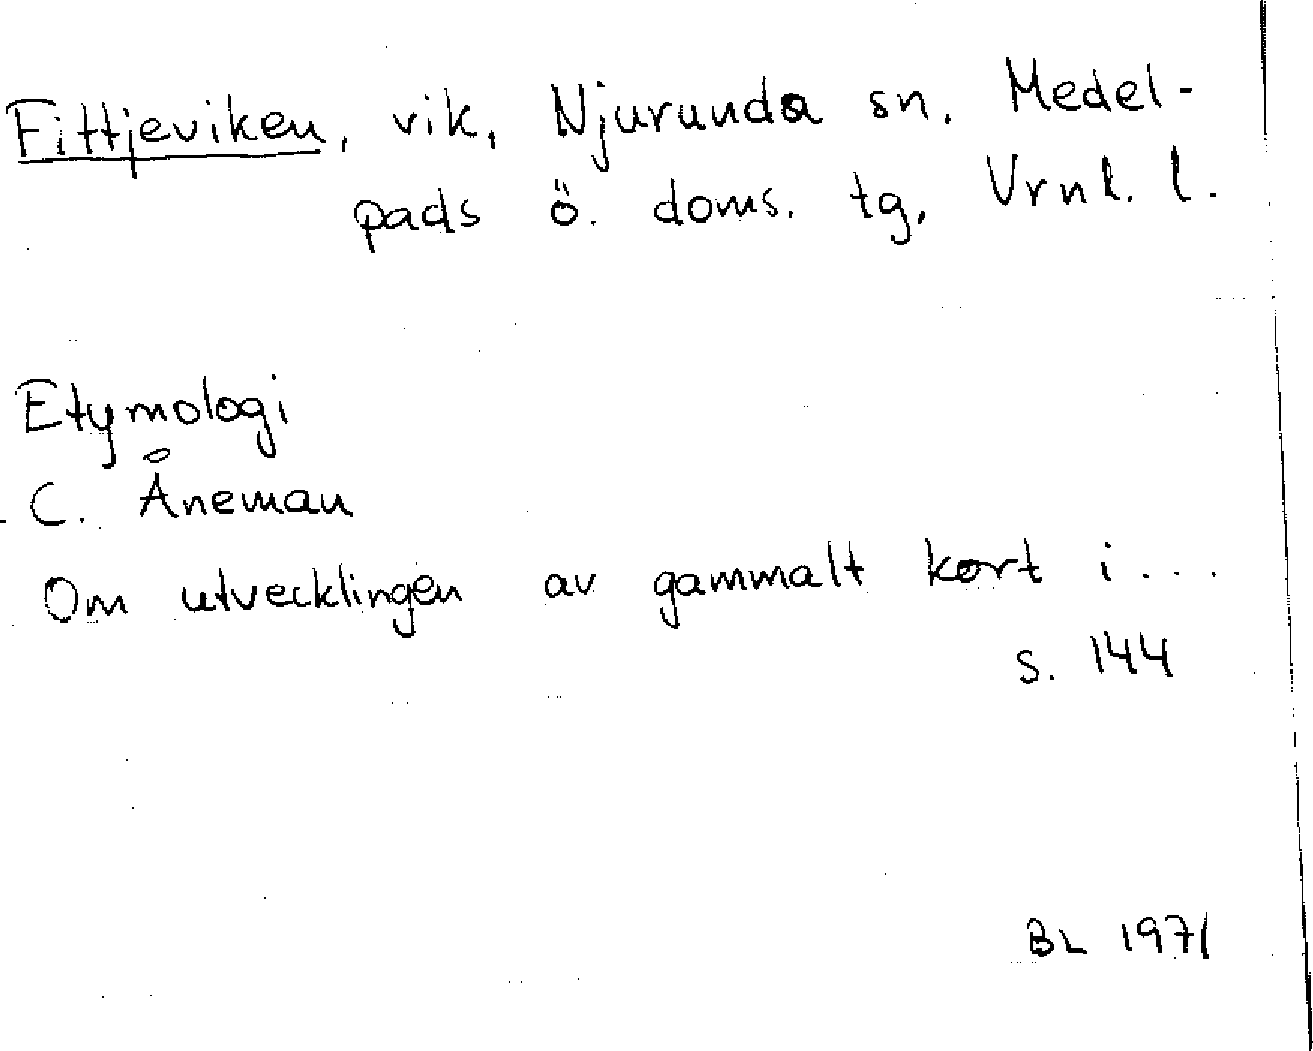 Fittjeviken, vik, Njurunda sn. Medel-
pads ö. doms. tg, Vrnl. l.
Etymologi
C. Åneman
Om utvecklingen av gammalt kort i...
s. 144
BL 1971